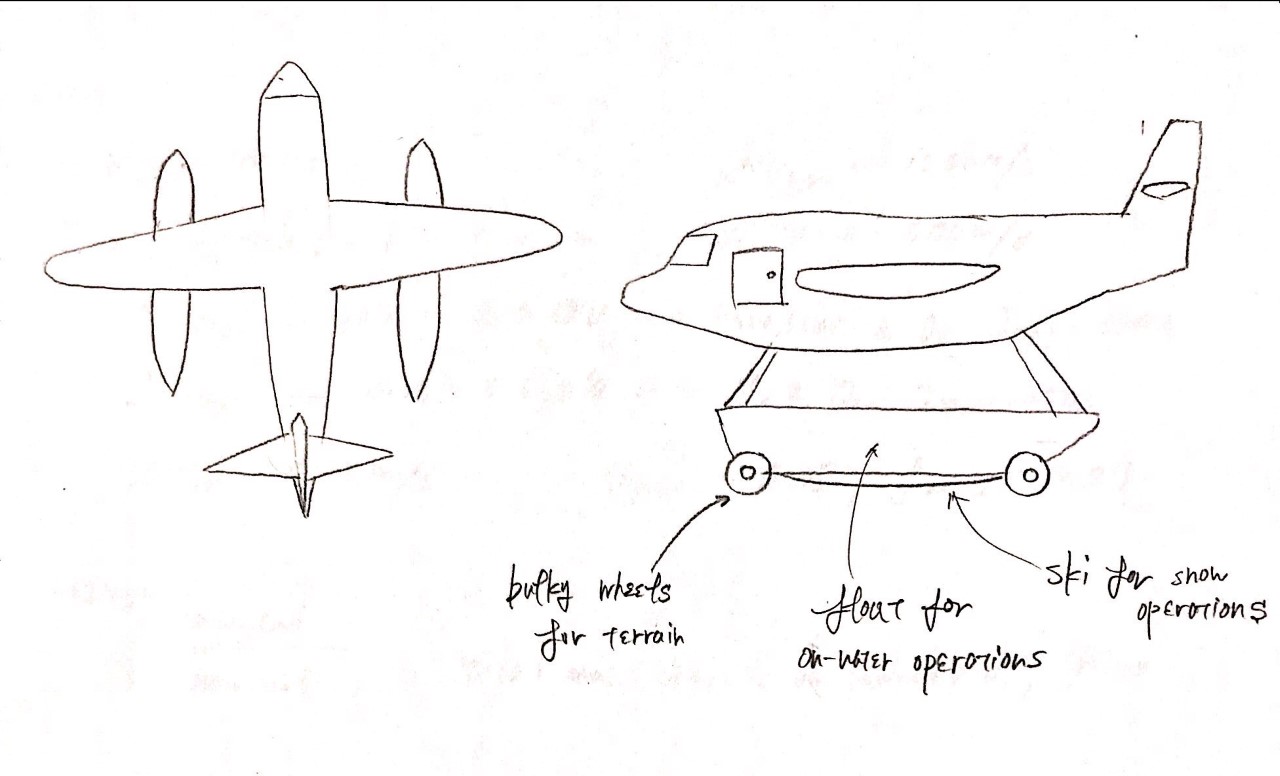 bulky wheels
for terrain
float for
on-water operations
ski for snow
operations